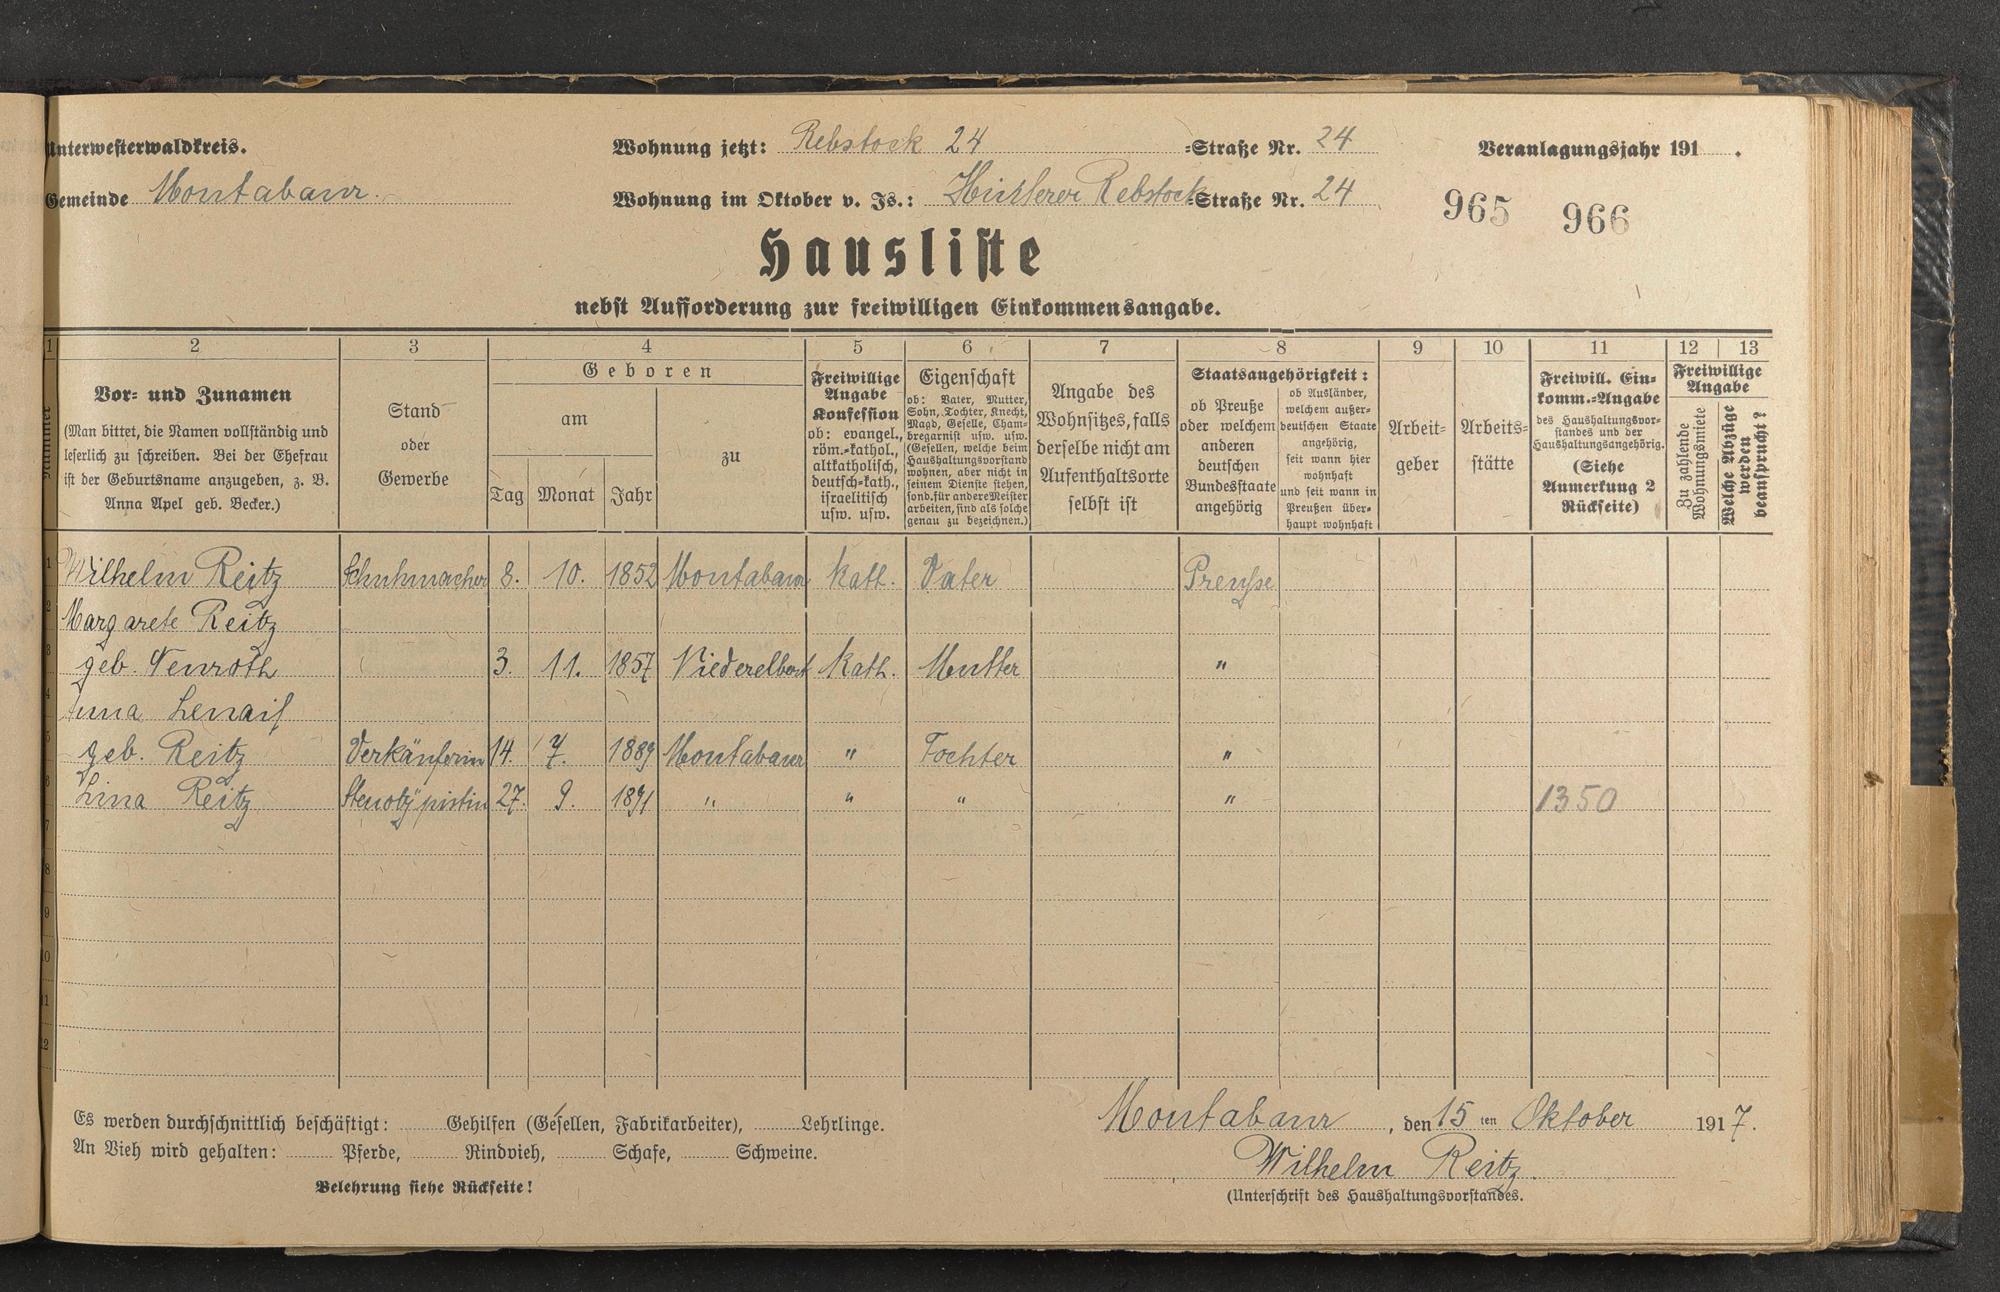 Unterwesterwaldkreis.
Wohnung jetzt: Rebstock 24 =Straße Nr. 24
Veranlagungsjahr 191 .
Gemeinde Montabaur.
Wohnung im Oktober v. Js.: Hinterer Rebstock =Straße Nr. 24
965 966
Hausliste
nebst Aufforderung zur freiwilligen Einkommensangabe.
1 2 3 4 5 6 7 8 9 10 11 12 13
Nummer
Vor- und Zunamen
(Man bittet, die Namen vollständig und
leserlich zu schreiben. Bei der Ehefrau
ist der Geburtsname anzugeben, z. B.
Anna Apel geb. Becker.)
Stand
oder
Gewerbe
Geboren
am
Tag Monat Jahr
zu
Freiwillige
Angabe
Konfession
ob: evangel.,
röm.-kathol.,
altkatholisch,
deutsch-kath.,
israelitisch
usw. usw.
Eigenschaft
ob: Vater, Mutter,
Sohn, Tochter, Knecht,
Magd, Geselle, Cham-
bregarnist usw. usw.
(Gesellen, welche beim
Haushaltungsvorstand
wohnen, aber nicht in
seinem Dienste stehen,
sond. für andere Meister
arbeiten, sind als solche
genau zu bezeichnen.)
Angabe des
Wohnsitzes, falls
derselbe nicht am
Aufenthaltsorte
selbst ist
Staatsangehörigkeit:
ob Preuße
oder welchem
anderen
deutschen
Bundesstaate
angehörig
ob Ausländer,
welchem außer-
deutschen Staate
angehörig,
seit wann hier
wohnhaft
und seit wann in
Preußen über-
haupt wohnhaft
Arbeit-
geber
Arbeits-
stätte
Freiwill. Ein-
komm.-Angabe
des Haushaltungsvor-
standes und der
Haushaltungsangehörig.
(Siehe
Anmerkung 2
Rückseite)
Freiwillige
Angabe
Zu zahlende
Wohnungsmiete
Welche Abzüge
werden
beansprucht?
1 Wilhelm Reitz Schuhmacher 8. 10. 1852 Montabaur kath. Vater Preuße
2 Margarete Reitz
3 geb. 3. 11. 1857 Niederelbert kath. Mutter "
4
5 geb. Reitz Verkäuferin 14. 7. 1889 Montabaur " Tochter "
6 Lina Reitz Stenotypistin 27. 9. 1891 " " " " 1350
7
8
9
10
11
12
Es werden durchschnittlich beschäftigt: Gehilfen (Gesellen, Fabrikarbeiter), Lehrlinge.
An Vieh wird gehalten: Pferde, Rindvieh, Schafe, Schweine.
Belehrung siehe Rückseite!
Montabaur, den 15 ten Oktober 1917.
Wilhelm Reitz.
(Unterschrift des Haushaltungsvorstandes.